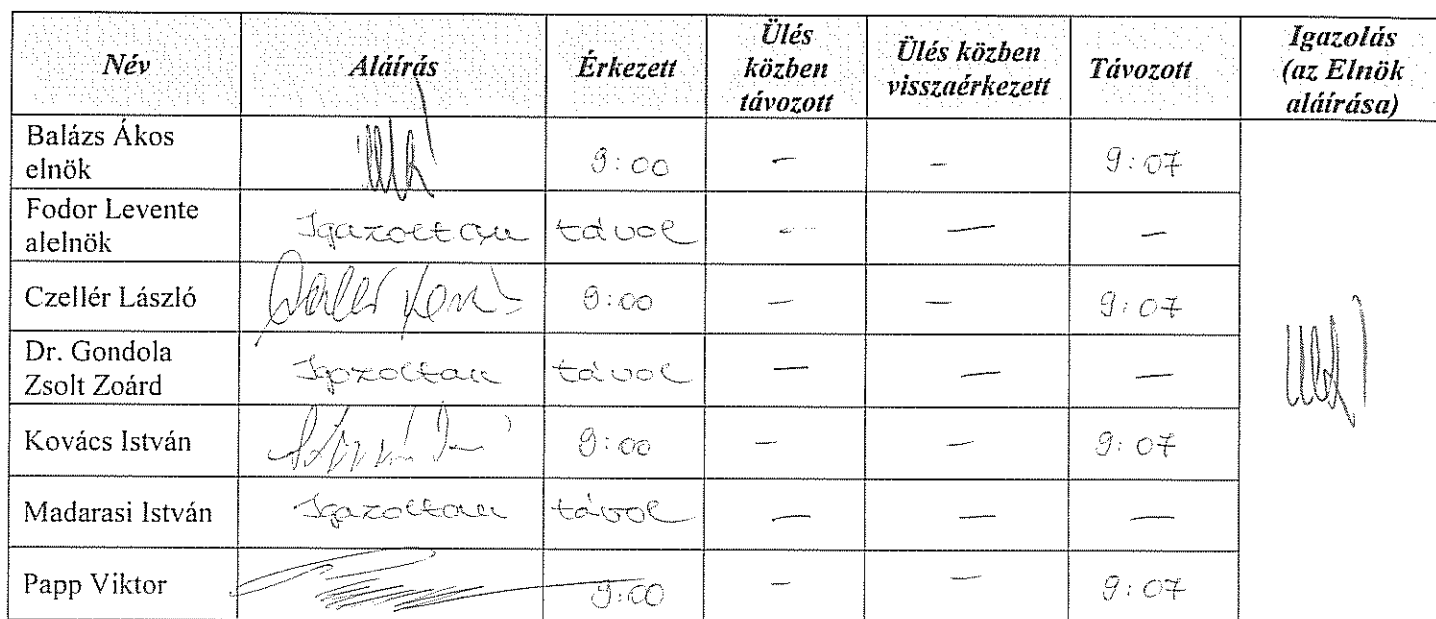 Név Aláírás Érkezett Ülés közben távozott Ülés közben visszaérkezett Távozott Igazolás (az Elnök aláírása)
Balázs Ákos elnök 9:00 – – 9:07
Fodor Levente alelnök Igazoltan távol – – –
Czellér László 9:00 – – 9:07
Dr. Gondola Zsolt Zoárd Igazoltan távol – – –
Kovács István 9:00 – – 9:07
Madarasi István Igazoltan távol – – –
Papp Viktor 9:00 – – 9:07